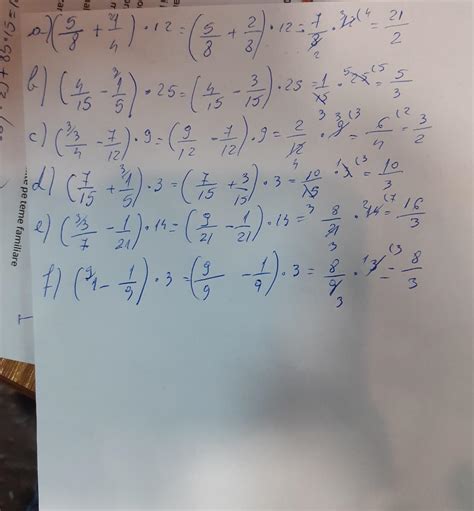 a) (5/8 + 1/4) · 12 = (5/8 + 2/8) · 12 = 7/8 · 12 = 21/2
b) (4/15 - 1/5) · 25 = (4/15 - 3/15) · 25 = 1/15 · 25 = 5/3
c) (3/4 - 7/12) · 9 = (9/12 - 7/12) · 9 = 2/12 · 9 = 6/4 = 3/2
d) (7/15 + 1/5) · 3 = (7/15 + 3/15) · 3 = 10/15 · 3 = 10/3
e) (3/7 - 1/21) · 14 = (9/21 - 1/21) · 14 = 8/21 · 14 = 16/3
f) (1 - 1/9) · 3 = (9/9 - 1/9) · 3 = 8/9 · 3 = 8/3
pe teme familiare